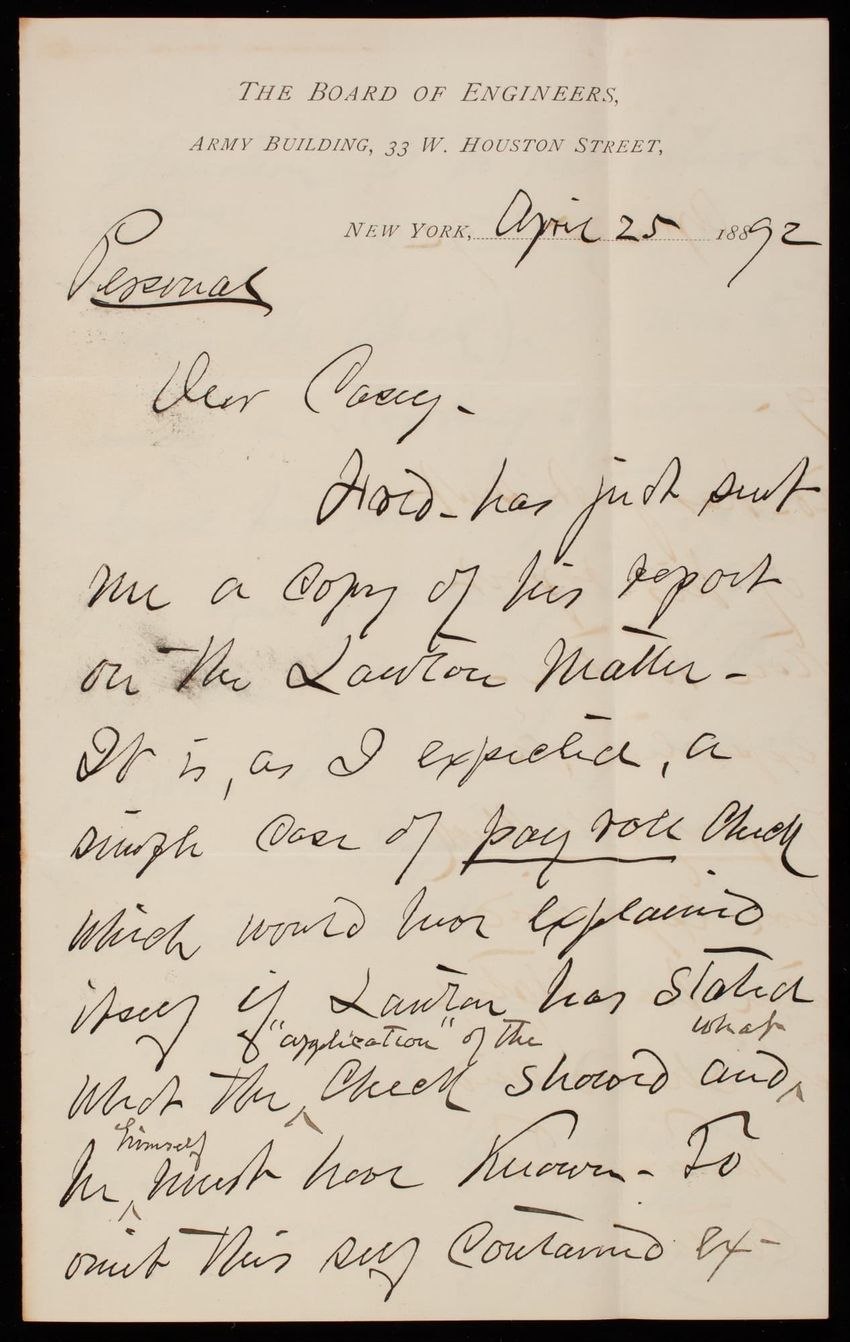 THE BOARD OF ENGINEERS,
ARMY BUILDING, 33 W. HOUSTON STREET,
NEW YORK, April 25 18892
Personal
Dear Casey -
has just sent
me a copy of his report
on the Lawton Matter -
It is, as I expected, a
simple case of pay roll Check
which would have explained
itself if Lawton has stated
"application" of the what
what the Check showed and
himself
he must have known - To
omit this self contained ex-